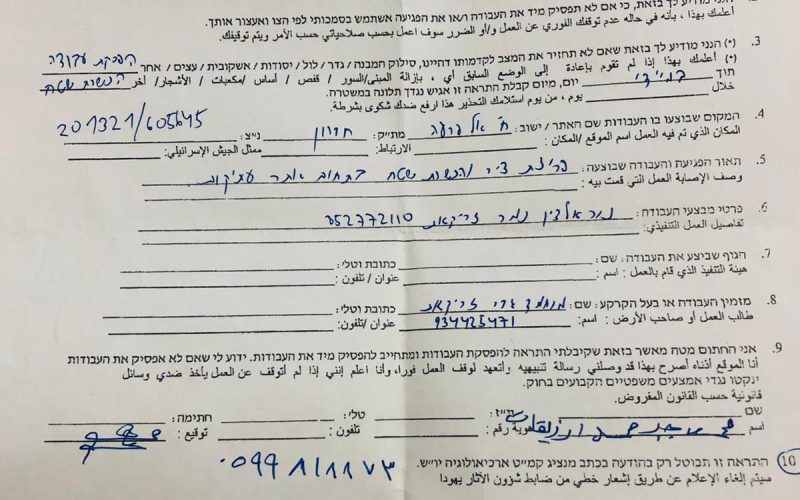 הנני מודיע לך בזאת, כי אם לא תפסיק מיד את העבודה ו/או את הפגיעה אשתמש בסמכותי לפי הצו ואעצור אותך.
أعلمك بهذا ، بأنه في حاله عدم توقفك الفوري عن العمل و/أو الضرر سوف اعمل بحسب صلاحياتي حسب الأمر ويتم توقيفك.
3. (*) הנני מודיע לך בזאת שאם לא תחזיר את המצב לקדמותו דהיינו, סילוק המבנה / גדר / לול / יסודות / אשקובית / עצים / אחר הפסקת עבודה
(*) أعلمك بهذا إذا لم تقوم بإعادة إلى الوضع السابق أي ، بازالة المبنى/السور / قفص / أساس /مكعبات / الأشجار/ آخر הכשרת שטח
תוך מיידי יום, מיום קבלת התראה זו אגיש נגדך תלונה במשטרה.
خلال يوم ، من يوم استلامك التحذير هذا ارفع ضدك شكوى بشرطة.
4. המקום שבוצעו בו העבודות שם האתר / ישוב: ח' אל פרעה מת"ק: חברון נ"צ: 201321/605645
المكان الذي تم فيه العمل اسم الموقع /المكان: الارتباط: ممثل الجيش الإسرائيلي:
5. תאור הפגיעה והעבודה שבוצעה: פריצת ציר והכשרת שטח בתחום אתר עתיקות
وصف الإصابة العمل التي قمت بيه :
6. פרטי מבצעי העבודה: נור אלדין נמר זריקאת 852772110
تفاصيل العمل التنفيذي:
7. הגוף שביצע את העבודה: שם: כתובת וטלי:
هيئة التنفيذ الذي قام بالعمل : اسم : عنوان / تلفون :
8. מזמין העבודה או בעל הקרקע: שם: מוחמד זריקאת כתובת וטלי:
طالب العمل أو صاحب الأرض : اسم: 934425471 عنوان /تلفون:
9. אני החתום מטה מאשר בזאת שקיבלתי התראה להפסקת העבודות ומתחייב להפסיק מיד את העבודות. ידוע לי שאם לא אפסיק את העבודות
أنا الموقع أدناه اصرح بهذا قد وصلني رسالة تنبيهيه وأتعهد لوقف العمل فورا، وأنا اعلم إنني إذا لم أتوقف عن العمل يأخذ ضدي وسائل
ינקטו נגדי אמצעים משפטיים הקבועים בחוק.
قانونية حسب القانون المفروض.
שם ת"ז: טלי: חתימה:
اسم هوية رقم : تلفون : توقيع :
10. התראה זו תבוטל רק בהודעה בכתב מנציג קמ"ט ארכיאולוגיה יו"ש.
سيتم إلغاء الإعلام عن طريق إشعار خطي من ضابط شؤون الآثار يهودا